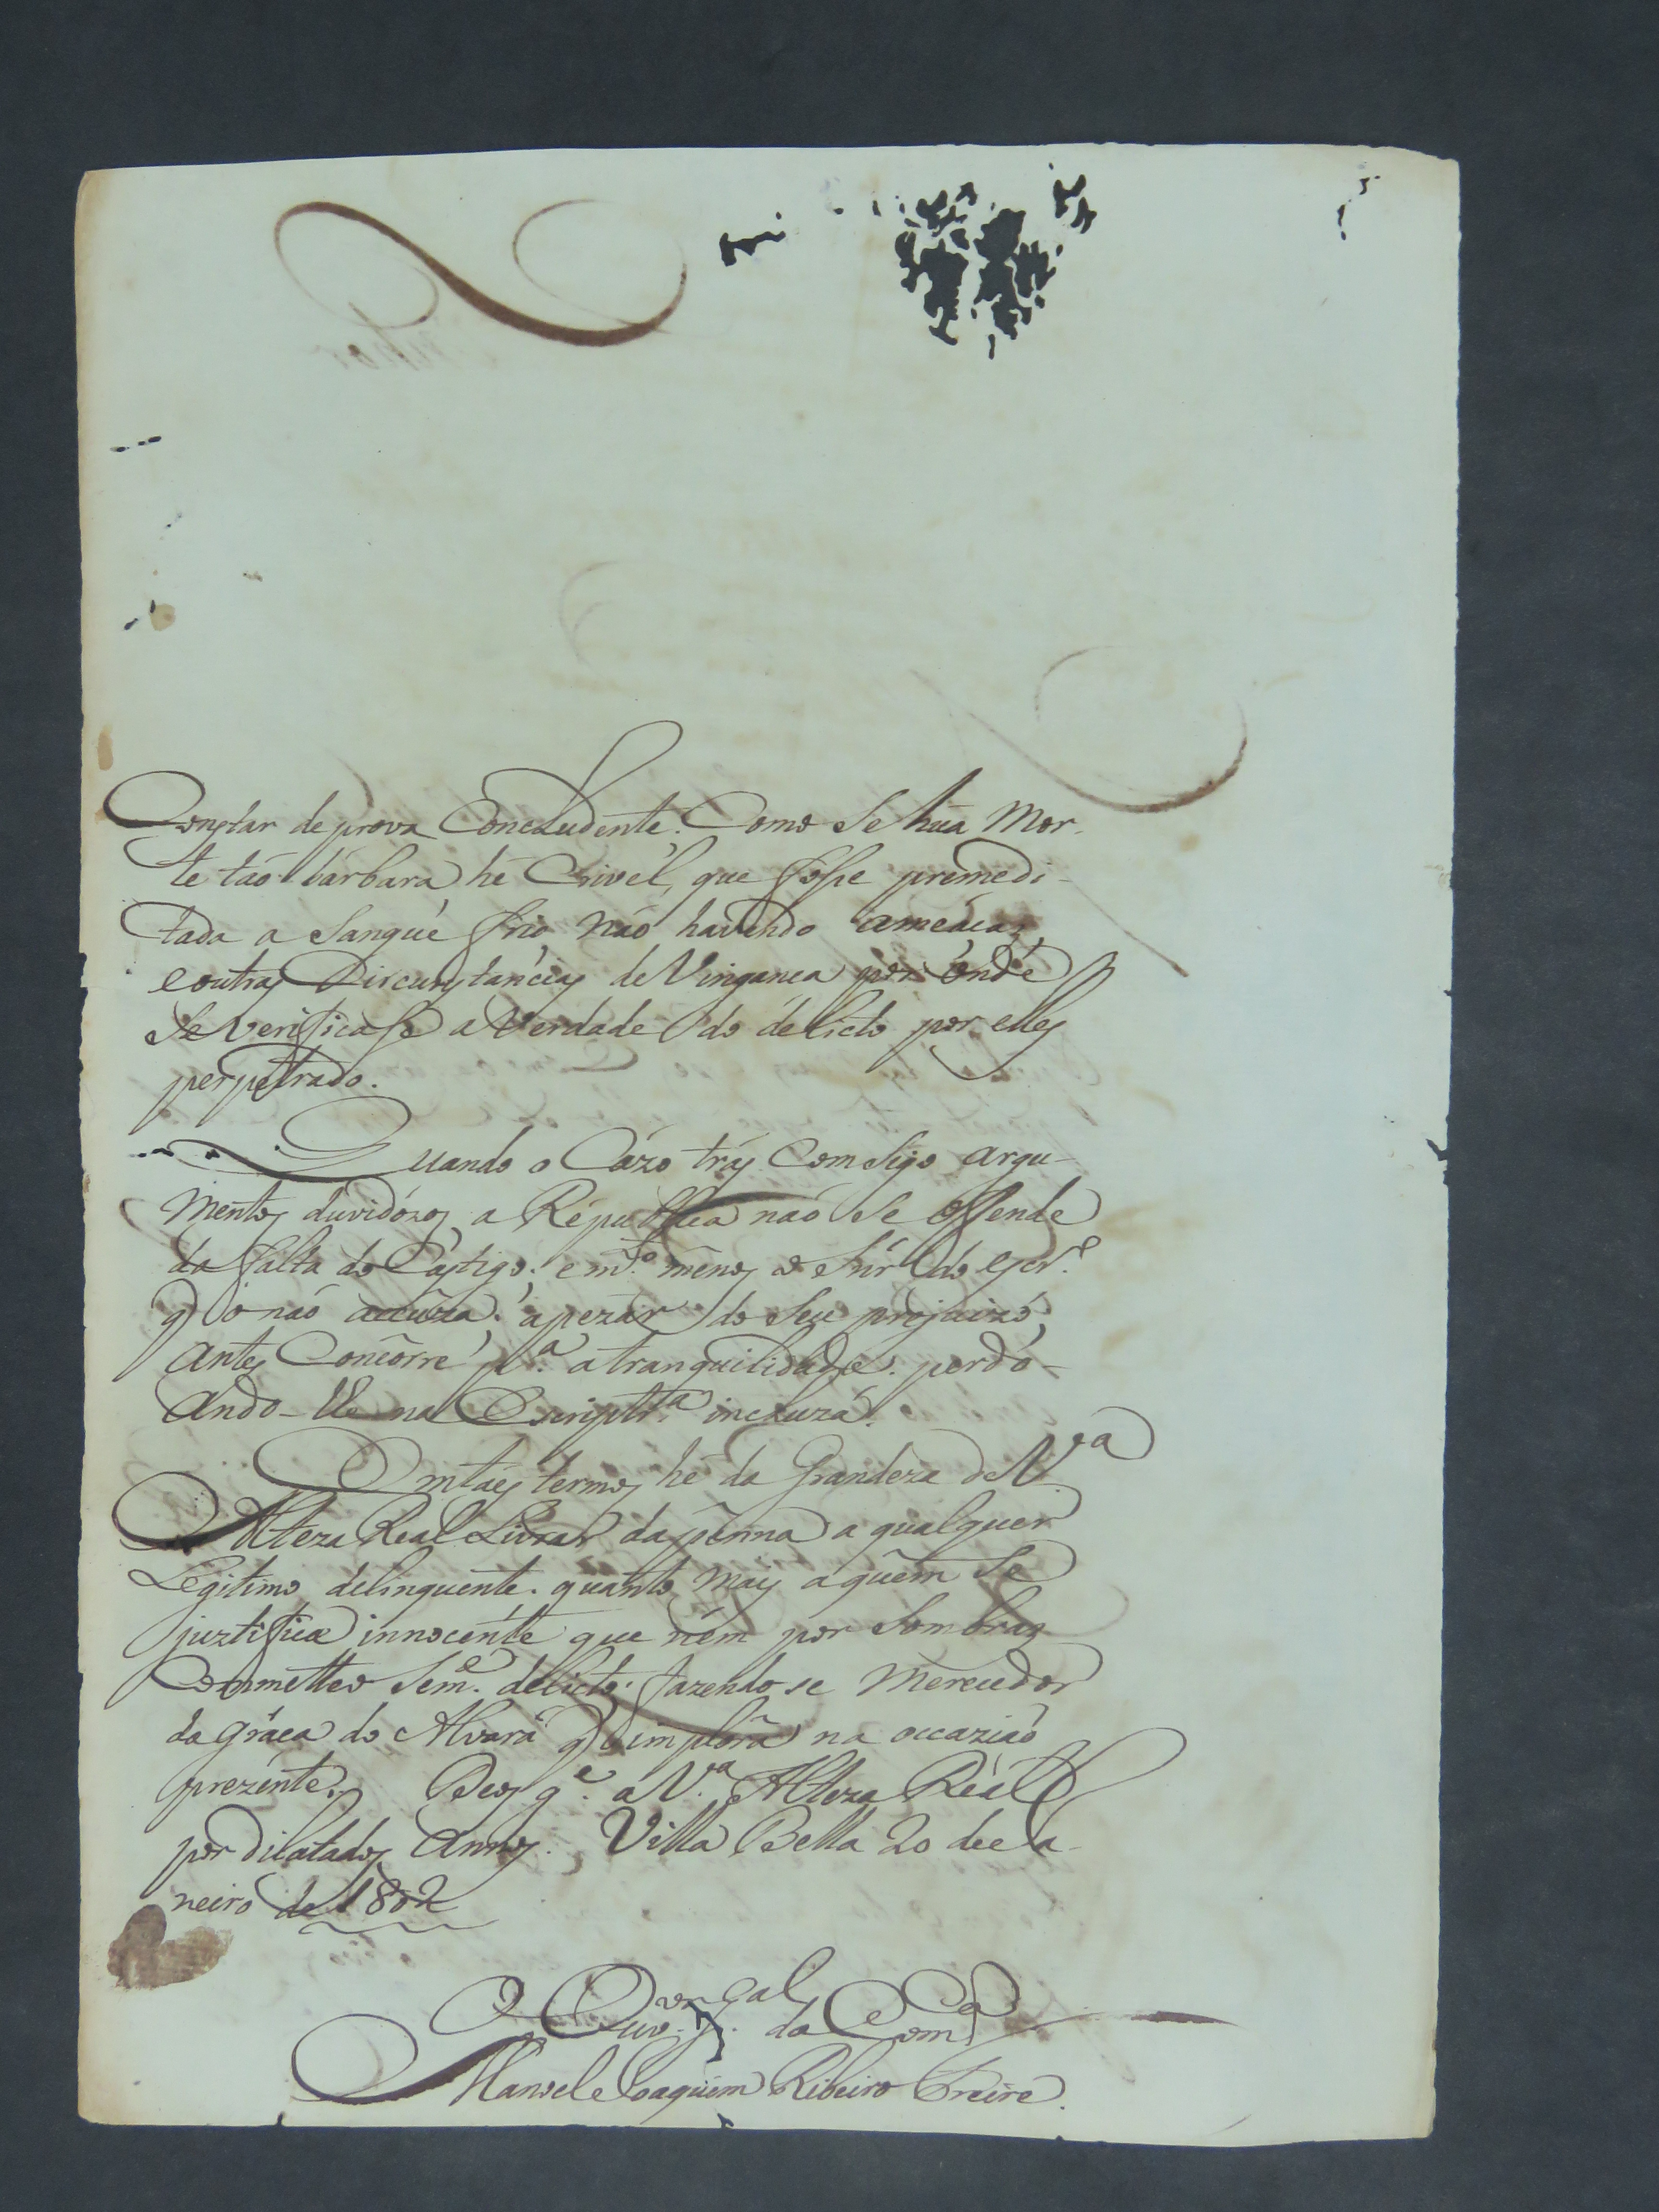 Constar de prova Concludente. Como Se hũa Mor-
te taó bárbara hé Crivél, que fosse premedi-
tada a Sangue frio, náo havendo ameáças,
e outras Circunstancias de Vingança por onde
Se verificasse a Verdade do délicto por elles
perpetrado.
Quando o Cázo trás Comsigo argu-
mentos duvidózos, a Républica naó Se offende
da falta do Cástigo; e m.to menos o Snr. do escr.º
q̃ o naó accuza; apezár do Seu prejuizo,
antes Concôrre p.ª a tranquilidade, perdo-
ando-lhe na Escript.ra incluza.
Em taes termos hé da Grandeza de V.ª
Alteza Real Livrar da penna a qualquer
Légitimo delinquente, quanto mais a quem Se
justifica innocente que ném por Sombras
Commetteo Sem.e delicto, fazendo se Merecedor
da gráça do Alvará q̃ implóra na occaziaó
prezente. Deos g.e a V.ª Alteza Reál
por dilatados Annos. Villa Bella 20 de Ja-
neiro de 1802
O Ouv.or G.al da Com.ca
Manoel Joaquim Ribeiro Freire.